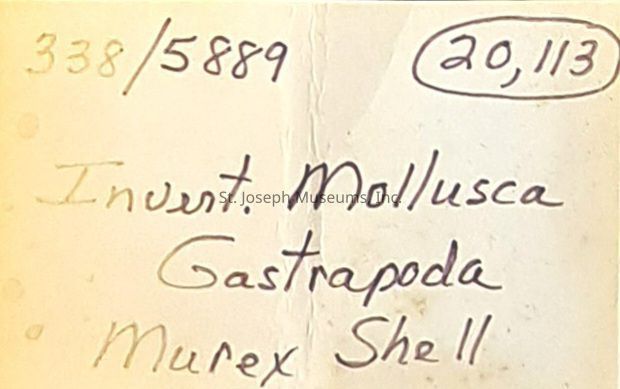 338/5889 20,113
Invert. Mollusca
St. Joseph Museums, Inc.
Gastrapoda
Murex Shell